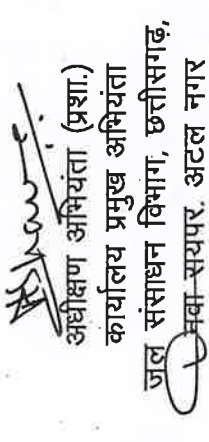 अधीक्षण अभियंता (प्रशा.)
कार्यालय प्रमुख अभियंता
जल संसाधन विभाग, छत्तीसगढ़,
नवा रायपुर अटल नगर